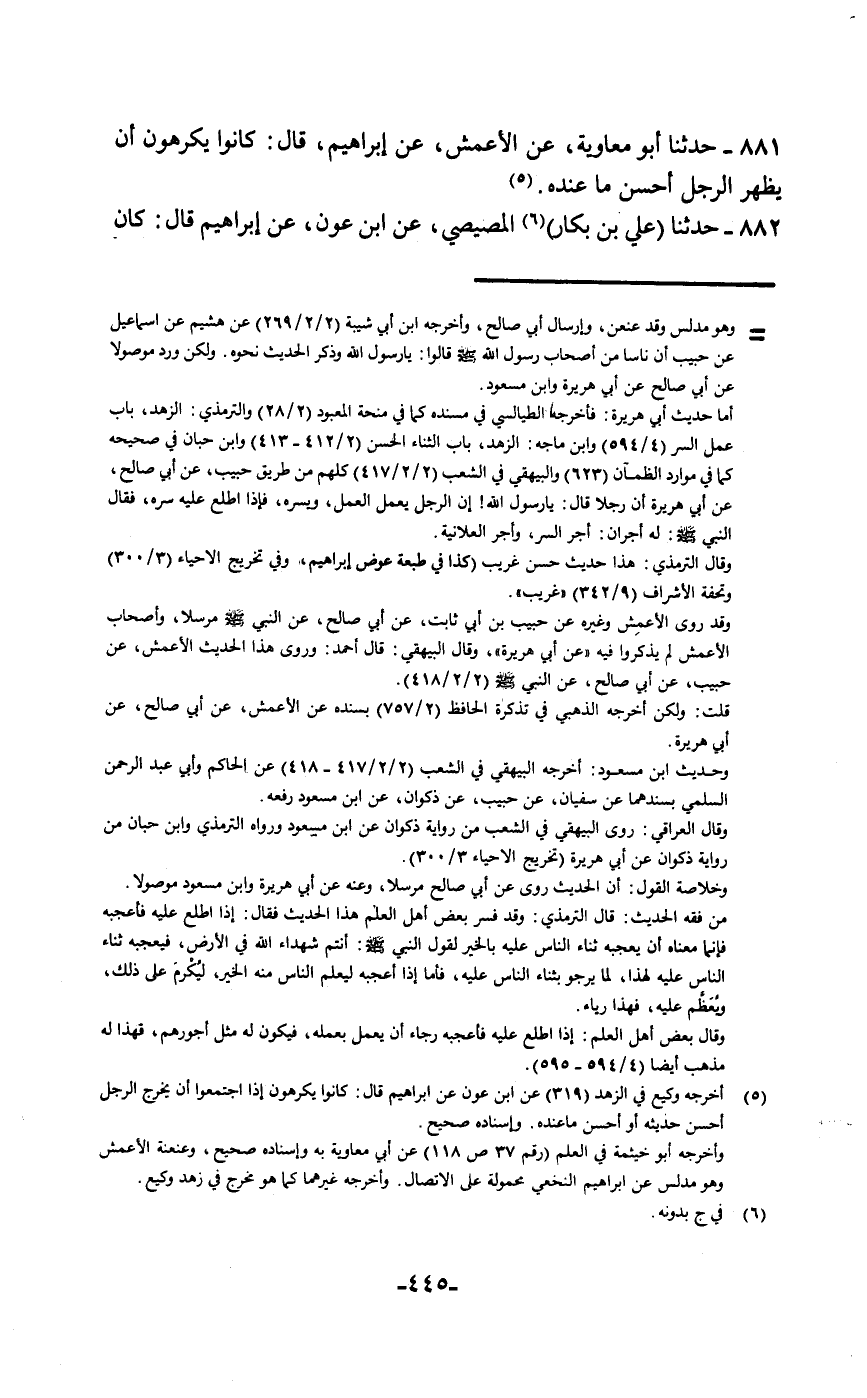 ٨٨١ ـ حدثنا أبو معاوية، عن الأعمش، عن إبراهيم، قال: كانوا يكرهون أن
يظهر الرجل أحسن ما عنده. (٥)
٨٨٢ ـ حدثنا (علي بن بكار)(٦) المصيصي، عن ابن عون، عن إبراهيم قال: كان
= وهو مدلس وقد عنعن، وإرسال أبي صالح، وأخرجه ابن أبي شيبة (٢/٢/٢٦٩) عن هشيم عن اسماعيل
عن حبيب أن ناسا من أصحاب رسول الله ﷺ قالوا: يارسول الله وذكر الحديث نحوه. ولكن ورد موصولا
عن أبي صالح عن أبي هريرة وابن مسعود.
أما حديث أبي هريرة: فأخرجه الطيالسي في مسنده كما في منحة المعبود (٢٨/٢) والترمذي: الزهد، باب
عمل السر (٥٩٤/٤) وابن ماجه: الزهد، باب الثناء الحسن (٤١٢/٢ ـ ٤١٣) وابن حبان في صحيحه
كما في موارد الظمآن (٦٢٣) والبيهقي في الشعب (٤١٧/٢/٢) كلهم من طريق حبيب، عن أبي صالح،
عن أبي هريرة أن رجلا قال: يارسول الله! إن الرجل يعمل العمل، ويسره، فإذا اطلع عليه سره، فقال
النبي ﷺ: له أجران: أجر السر، وأجر العلانية.
وقال الترمذي: هذا حديث حسن غريب (كذا في طبعة عوض إبراهيم، وفي تخريج الاحياء (٣٠٠/٣)
وتحفة الأشراف (٣٤٢/٩) «غريب».
وقد روى الأعمش وغيره عن حبيب بن أبي ثابت، عن أبي صالح، عن النبي ﷺ مرسلا، وأصحاب
الأعمش لم يذكروا فيه «عن أبي هريرة»، وقال البيهقي: قال أحمد: وروى هذا الحديث الأعمش، عن
حبيب، عن أبي صالح، عن النبي ﷺ (٤١٨/٢/٢).
قلت: ولكن أخرجه الذهبي في تذكرة الحافظ (٧٥٧/٢) بسنده عن الأعمش، عن أبي صالح، عن
أبي هريرة.
وحديث ابن مسعود: أخرجه البيهقي في الشعب (٤١٧/٢/٢ ـ ٤١٨) عن الحاكم وأبي عبد الرحمن
السلمي بسندهما عن سفيان، عن حبيب، عن ذكوان، عن ابن مسعود رفعه.
وقال العراقي: روى البيهقي في الشعب من رواية ذكوان عن ابن مسعود ورواه الترمذي وابن حبان من
رواية ذكوان عن أبي هريرة (تخريج الاحياء ٣٠٠/٣).
وخلاصة القول: أن الحديث روى عن أبي صالح مرسلا، وعنه عن أبي هريرة وابن مسعود موصولا.
من فقه الحديث: قال الترمذي: وقد فسر بعض أهل العلم هذا الحديث فقال: إذا اطلع عليه فأعجبه
فإنما معناه أن يعجبه ثناء الناس عليه بالخير لقول النبي ﷺ: أنتم شهداء الله في الأرض، فيعجبه ثناء
الناس عليه لهذا، لما يرجو بثناء الناس عليه، فأما إذا أعجبه ليعلم الناس منه الخير، ليُكْرمَ على ذلك،
ويُعَظَّم عليه، فهذا رياء.
وقال بعض أهل العلم: إذا اطلع عليه فأعجبه رجاء أن يعمل بعمله، فيكون له مثل أجورهم، فهذا له
مذهب أيضا (٥٩٤/٤ ـ ٥٩٥).
(٥) أخرجه وكيع في الزهد (٣١٩) عن ابن عون عن ابراهيم قال: كانوا يكرهون إذا اجتمعوا أن يخرج الرجل
أحسن حديثه أو أحسن ماعنده. وإسناده صحيح.
وأخرجه أبو خيثمة في العلم (رقم ٣٧ ص ١١٨) عن أبي معاوية به وإسناده صحيح، وعنعنة الأعمش
وهو مدلس عن ابراهيم النخعي محمولة على الاتصال. وأخرجه غيرهما كما هو مخرج في زهد وكيع.
(٦) في ج بدونه.
ـ٤٤٥ـ